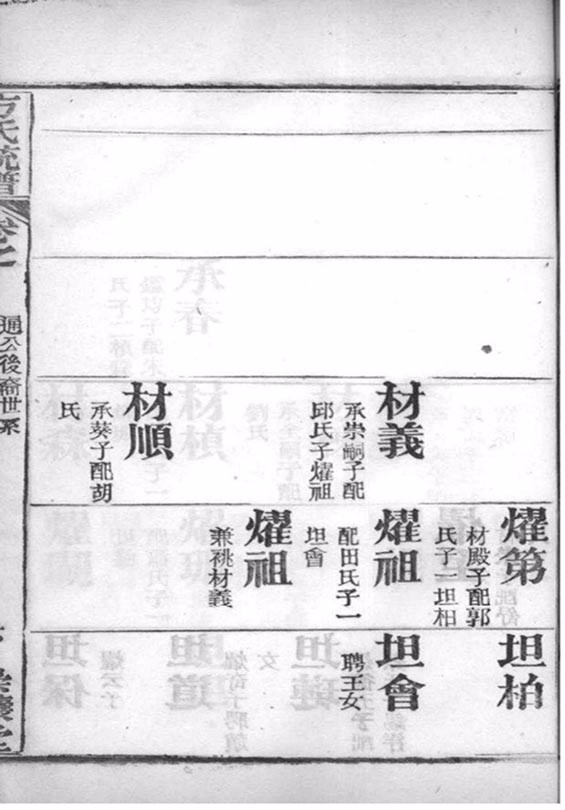 材義
承崇嗣子配
邱氏子燿祖
材順
承葵子配胡
氏
燿第
材殿子配郭
氏子一坦相
燿祖
配田氏子一
坦會
燿祖
兼祧材義
坦柏
坦會
聘王女
方氏統譜
卷之
通公後裔世系